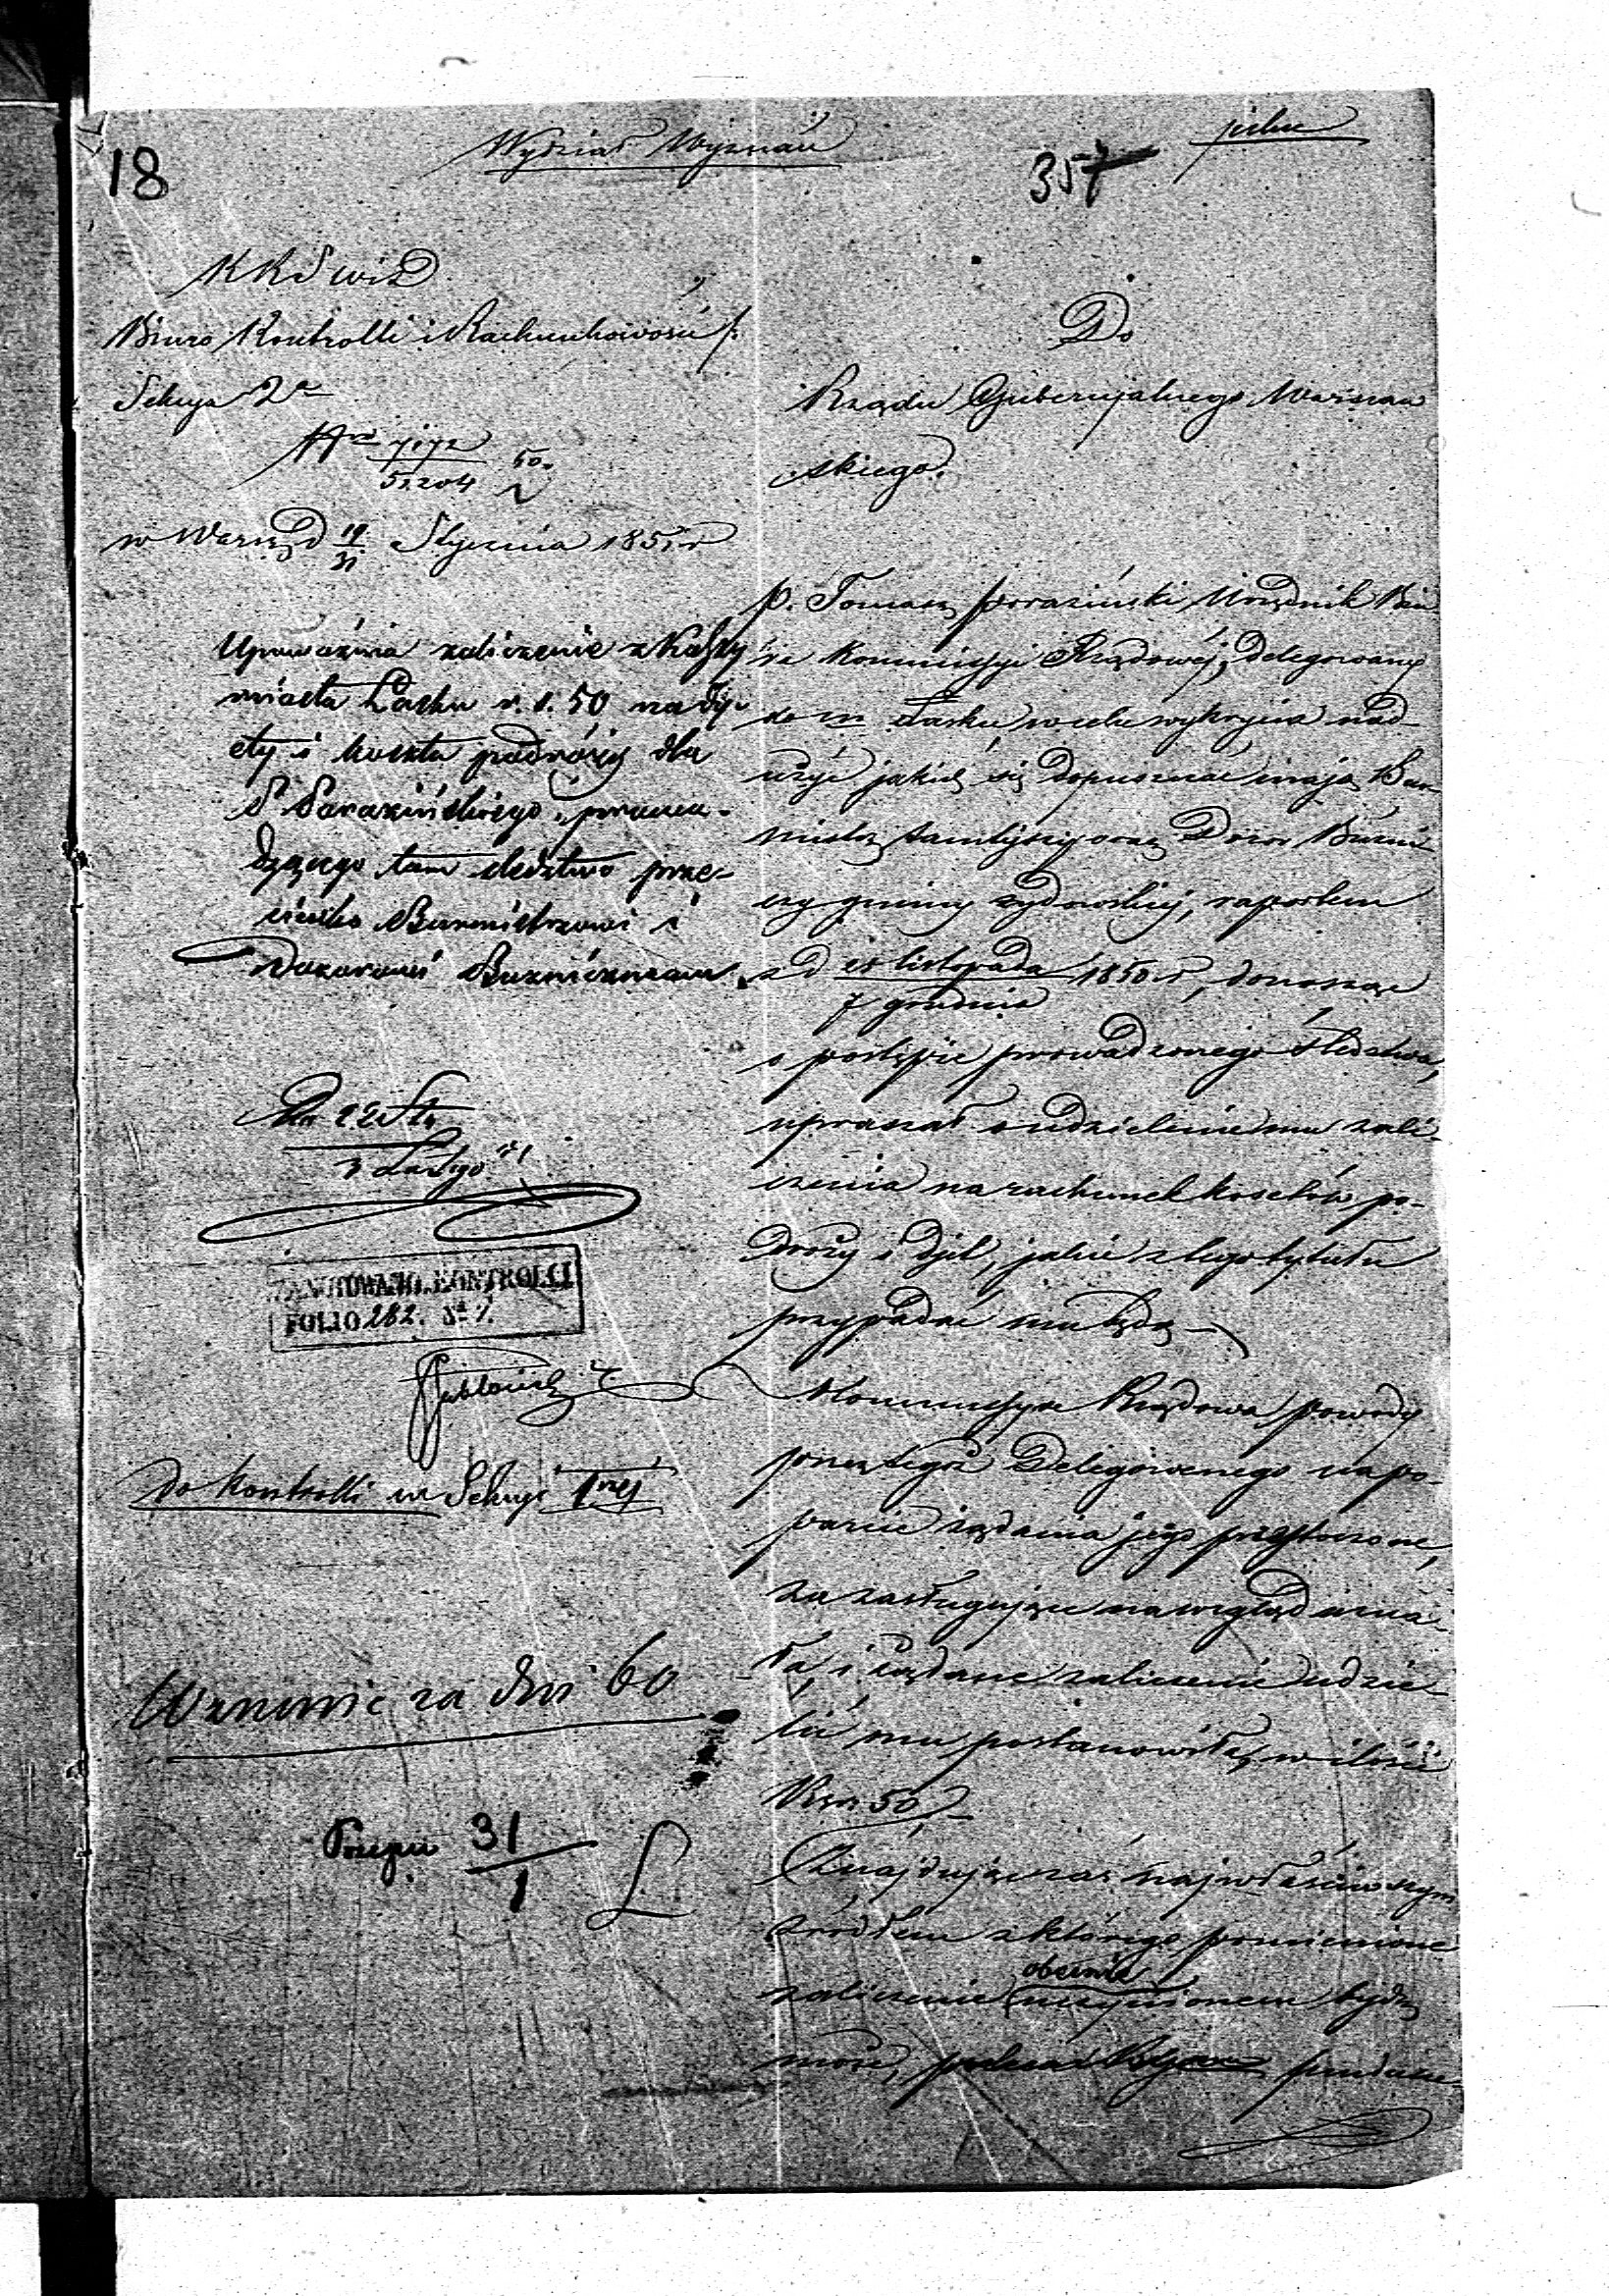 Wydział Wyznań
pilne
18
357
KRSWiD
Biuro Kontrolli i Rachunkowości
Sekcya 2a
Nro 7172
51204 50
w Warsz. d 19/31 Stycznia 1851 r
Upoważnia zaliczenie z Kassy
miasta Łasku r. s. 50 na dy-
ety i koszta podróży dla
P. Parazińskiego, prowa-
dzącego tam śledztwo prze-
ciwko Burmistrzowi i
Dozorowi Bużniczemu.
22 St
3 Lutego
KONTROLLI
FOLIO 282. No 1.
do Kontrolli w Sekcyi 1nej
Wznowić za dni 60
31
1
Do
Rządu Gubernijalnego Warszaw
skiego.
P. Tomasz Poraziński Urzędnik Biu
ra Kommissyi Rządowéj, delegowany
do m. Łasku, w celu wykrycia nad-
użyć jakich się dopuszczać mają Bur-
mistrz tamtejszy oraz Dozór Bużni-
czy gminy żydowskiej, raportem
z d 25 listopada 1850 r, donosząc
7 grudnia
o postępie prowadzonego śledztwa,
upraszał o udzielenie mu zali-
czenia na rachunek kosztów po-
droży i djet, jakie z tego tytułu
przypadać mu będą
Kommissya Rządowa powody
przez tegoż Delegowanego na po-
parcie żądania jego przytoczone,
za zasługujące na wzgląd uzna-
ła, i żądane zaliczenie udzie-
lić mu postanowiła, w ilości
Rsr. 50
Znajdując zaś najwłaściwszym
źródłem z którego pomienione
obecnie
zaliczenie uczynionem bydź
może,